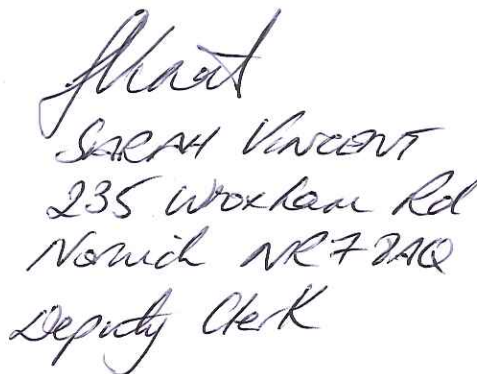 SVincent
SARAH VINCENT
235 Wroxham Rd
Norwich NR7 8AQ
Deputy Clerk